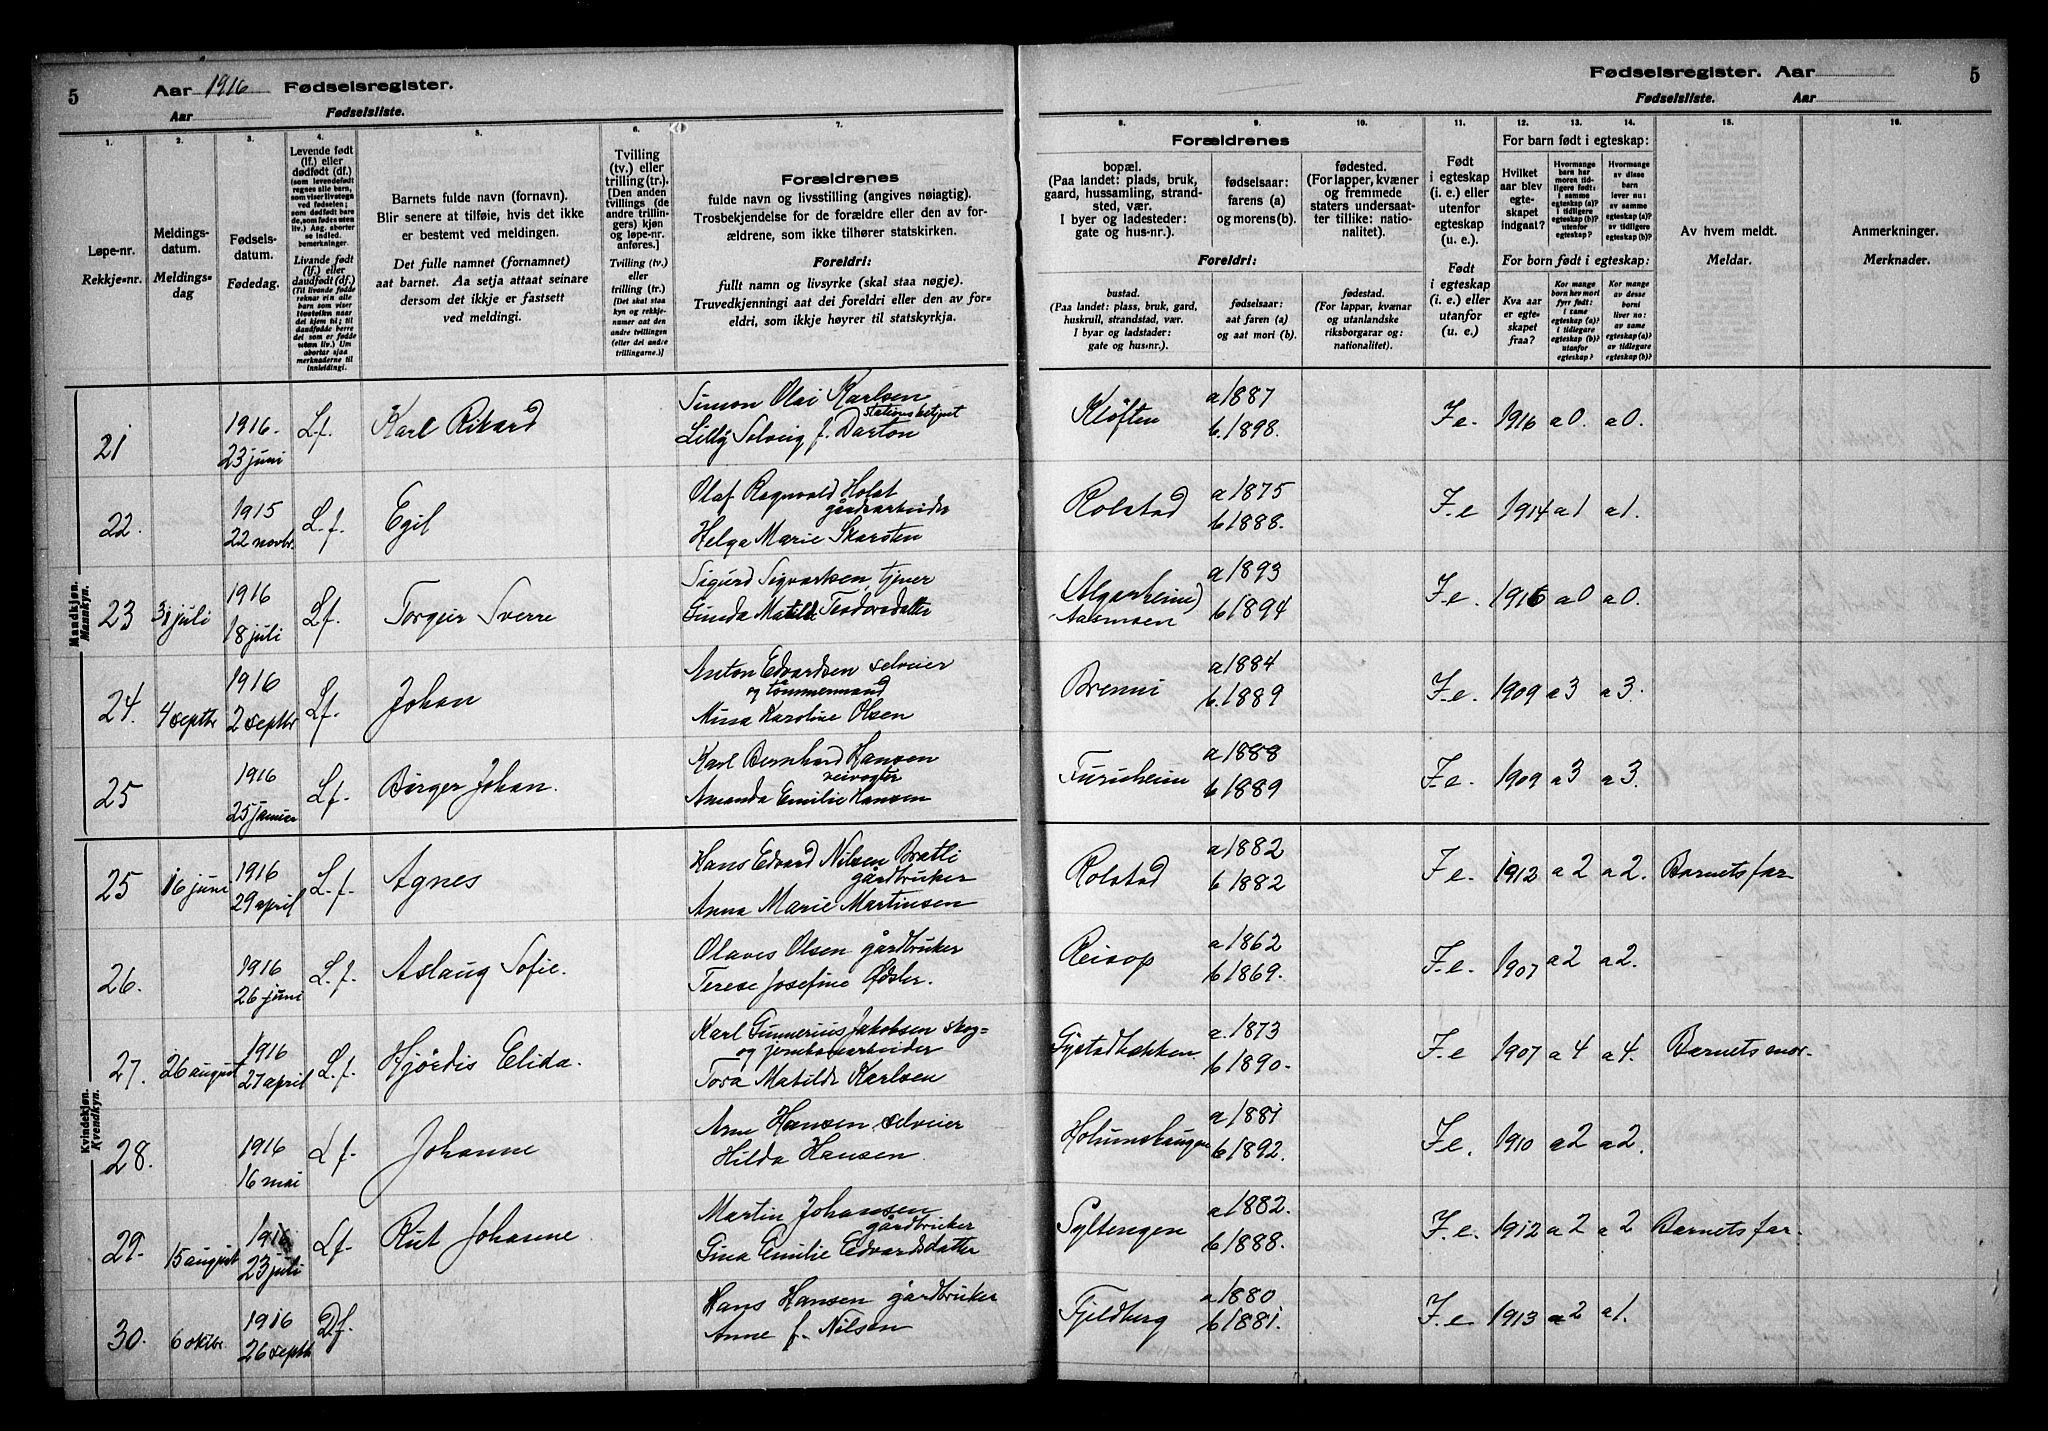 5
Aar 1916 Fødselsregister.
Aar Fødselsliste.
1.
Løpe-nr.
Rekkje-nr.
2.
Meldings-
datum.
Meldings-
dag
3.
Fødsels-
datum.
Fødedag.
4.
Levende født
(lf.) eller
dødfødt (df.)
Livande født
(lf.) eller
daudfødt (df.)
5.
Barnets fulde navn (fornavn).
Blir senere at tilføie, hvis det ikke
er bestemt ved meldingen.
Det fulle namnet (fornamnet)
aat barnet. Aa setja attaat seinare
dersom det ikkje er fastsett
ved meldingi.
6.
Tvilling
(tv.) eller
trilling (tr.).
[Den anden
tvillings (de
andre trillin-
gers) kjøn
og løpe-nr.
anføres.]
Tvilling (tv.)
eller
trilling (tr.)
[Det skal staa
kyn og rekkje-
numer aat den
andre tvillingen
(eller dei andre
trillingarne.)]
7.
Forældrenes
fulde navn og livsstilling (angives nøiagtig).
Trosbekjendelse for de forældre eller den av for-
ældrene, som ikke tilhører statskirken.
Foreldri:
fullt namn og livsyrke (skal staa nøgje).
Truvedkjenningi aat dei foreldri eller den av for-
eldri, som ikkje høyrer til statskyrkja.
Mandkjøn.
Mannkyn.
21 1916. 23 juni Lf. Karl Rikard Simon Olai Karlsen stationsbetjent Lilly Solveig f. Darton
22. 1915 22 novbr. L.f. Egil Olaf Ragnvald Holst gårdsarbeider Helga Marie Skarsten
23 31 juli 1916 18 juli Lf. Torgeir Sverre Sigurd Sigvartsen, tjener Gunda Matilde Teodorsdatter
24. 4 septbr 1916 2 septbr Lf. Johan Anton Edvardsen selveier og tømmermand Mina Karoline Olsen
25 1916 25 januar Lf. Birger Johan. Karl Bernhard Hansen veivogter Amanda Emilie Hansen
Kvindekjøn.
Kvendkyn.
25 16 juni 1916 29 april L.f. Agnes Hans Edvard Nilsen Bratli gårdbruker Anna Marie Martinsen
26. 1916 26 juni L.f. Aslaug Sofie. Olaves Olsen gårdbruker Terese Josefine Ødsler.
27. 26 august 1916 27 april L.f. Hjørdis Elida. Karl Gunnerius Jakobsen skog- og jernbanearbeider Tora Matilde Karlsen
28. 1916 16 mai Lf. Johanne Arne Hansen selveier Hilda Hansen.
29. 15 august 1916 23 juli Lf. Rut Johanne Martin Johansen gårdbruker Gina Emilie Edvardsdatter
30. 6 oktbr. 1916 26 septbr Df. Hans Hansen gårdbruker Anne f. Nilsen
Fødselsregister. Aar 5
Fødselsliste. Aar
8.
Forældrenes
bopæl.
(Paa landet: plads, bruk,
gaard, hussamling, strand-
sted, vær.
I byer og ladesteder:
gate og hus-nr.).
Foreldri:
bustad.
(Paa landet: plass, bruk, gard,
huskrull, strandstad, vær.
I byar og ladstader:
gate og hus-nr.).
9.
fødselsaar:
farens (a)
og morens(b).
fødselsaar:
aat faren (a)
og aat mori (b).
10.
fødested.
(For lapper, kvæner
og fremmede
staters undersaat-
ter tillike: natio-
nalitet).
fødestad.
(For lappar, kvænar
og utanlandske
riksborgarar og:
nationalitet).
11.
Født
i egteskap
(i. e.) eller
utenfor
egteskap
(u. e.).
Født
i egteskap
(i. e.) eller
utanfor
egteskap
(u. e.).
For barn født i egteskap:
12.
Hvilket
aar blev
egte-
skapet
indgaat?
13.
Hvormange
barn har
moren tid-
ligere født:
i samme
egteskap (a)?
i tidligere
egteskap (b)?
utenfor
egteskap?
14.
Hvormange
av disse
barn
lever nu:
av samme
egteskap (a)?
av tidligere
egteskap (b)?
For born født i egteskap:
Kva aar
er egte-
skapet
fraa?
Kor mange
born hev mori
fyrr født:
i same
egteskap (a)?
i tidlegare
egteskap (b)?
utanfor
egteskap?
Kor mange
av desse
borni
liver no:
av same
egteskap (a)?
av tidlegare
egteskap (b)?
15.
Av hvem meldt.
Meldar.
16.
Anmerkninger.
Merknader.
Kløften a 1887 b. 1898. I e. 1916 a 0. a 0.
Rolstad a 1875 b 1888. I. e 1914 a 1 a 1.
(Algarheim) Aasmoen a 1893 b 1894 I e. 1916 a 0 a 0.
Brenni a 1884 b. 1889 I. e. 1909 a 3 a 3.
Furuheim a 1888 b 1889 I. e. 1909 a 3 a 3.
Rolstad a 1882 b 1882 I e. 1912 a 2 a 2. Barnets far
Reisop a 1862 b 1869. I. e. 1907 a 2 a 2.
Gystadbakken a. 1873 b 1890. I. e 1907 a 4 a 4. Barnets mor.
Holumshaugen a. 1881 b 1892. I e. 1910 a 2 a 2.
Syltengen a 1882. b 1888. I e. 1912 a 2 a 2 Barnets far.
Fjeldberg a 1880 b 1881. I. e 1913 a 2 a 1.